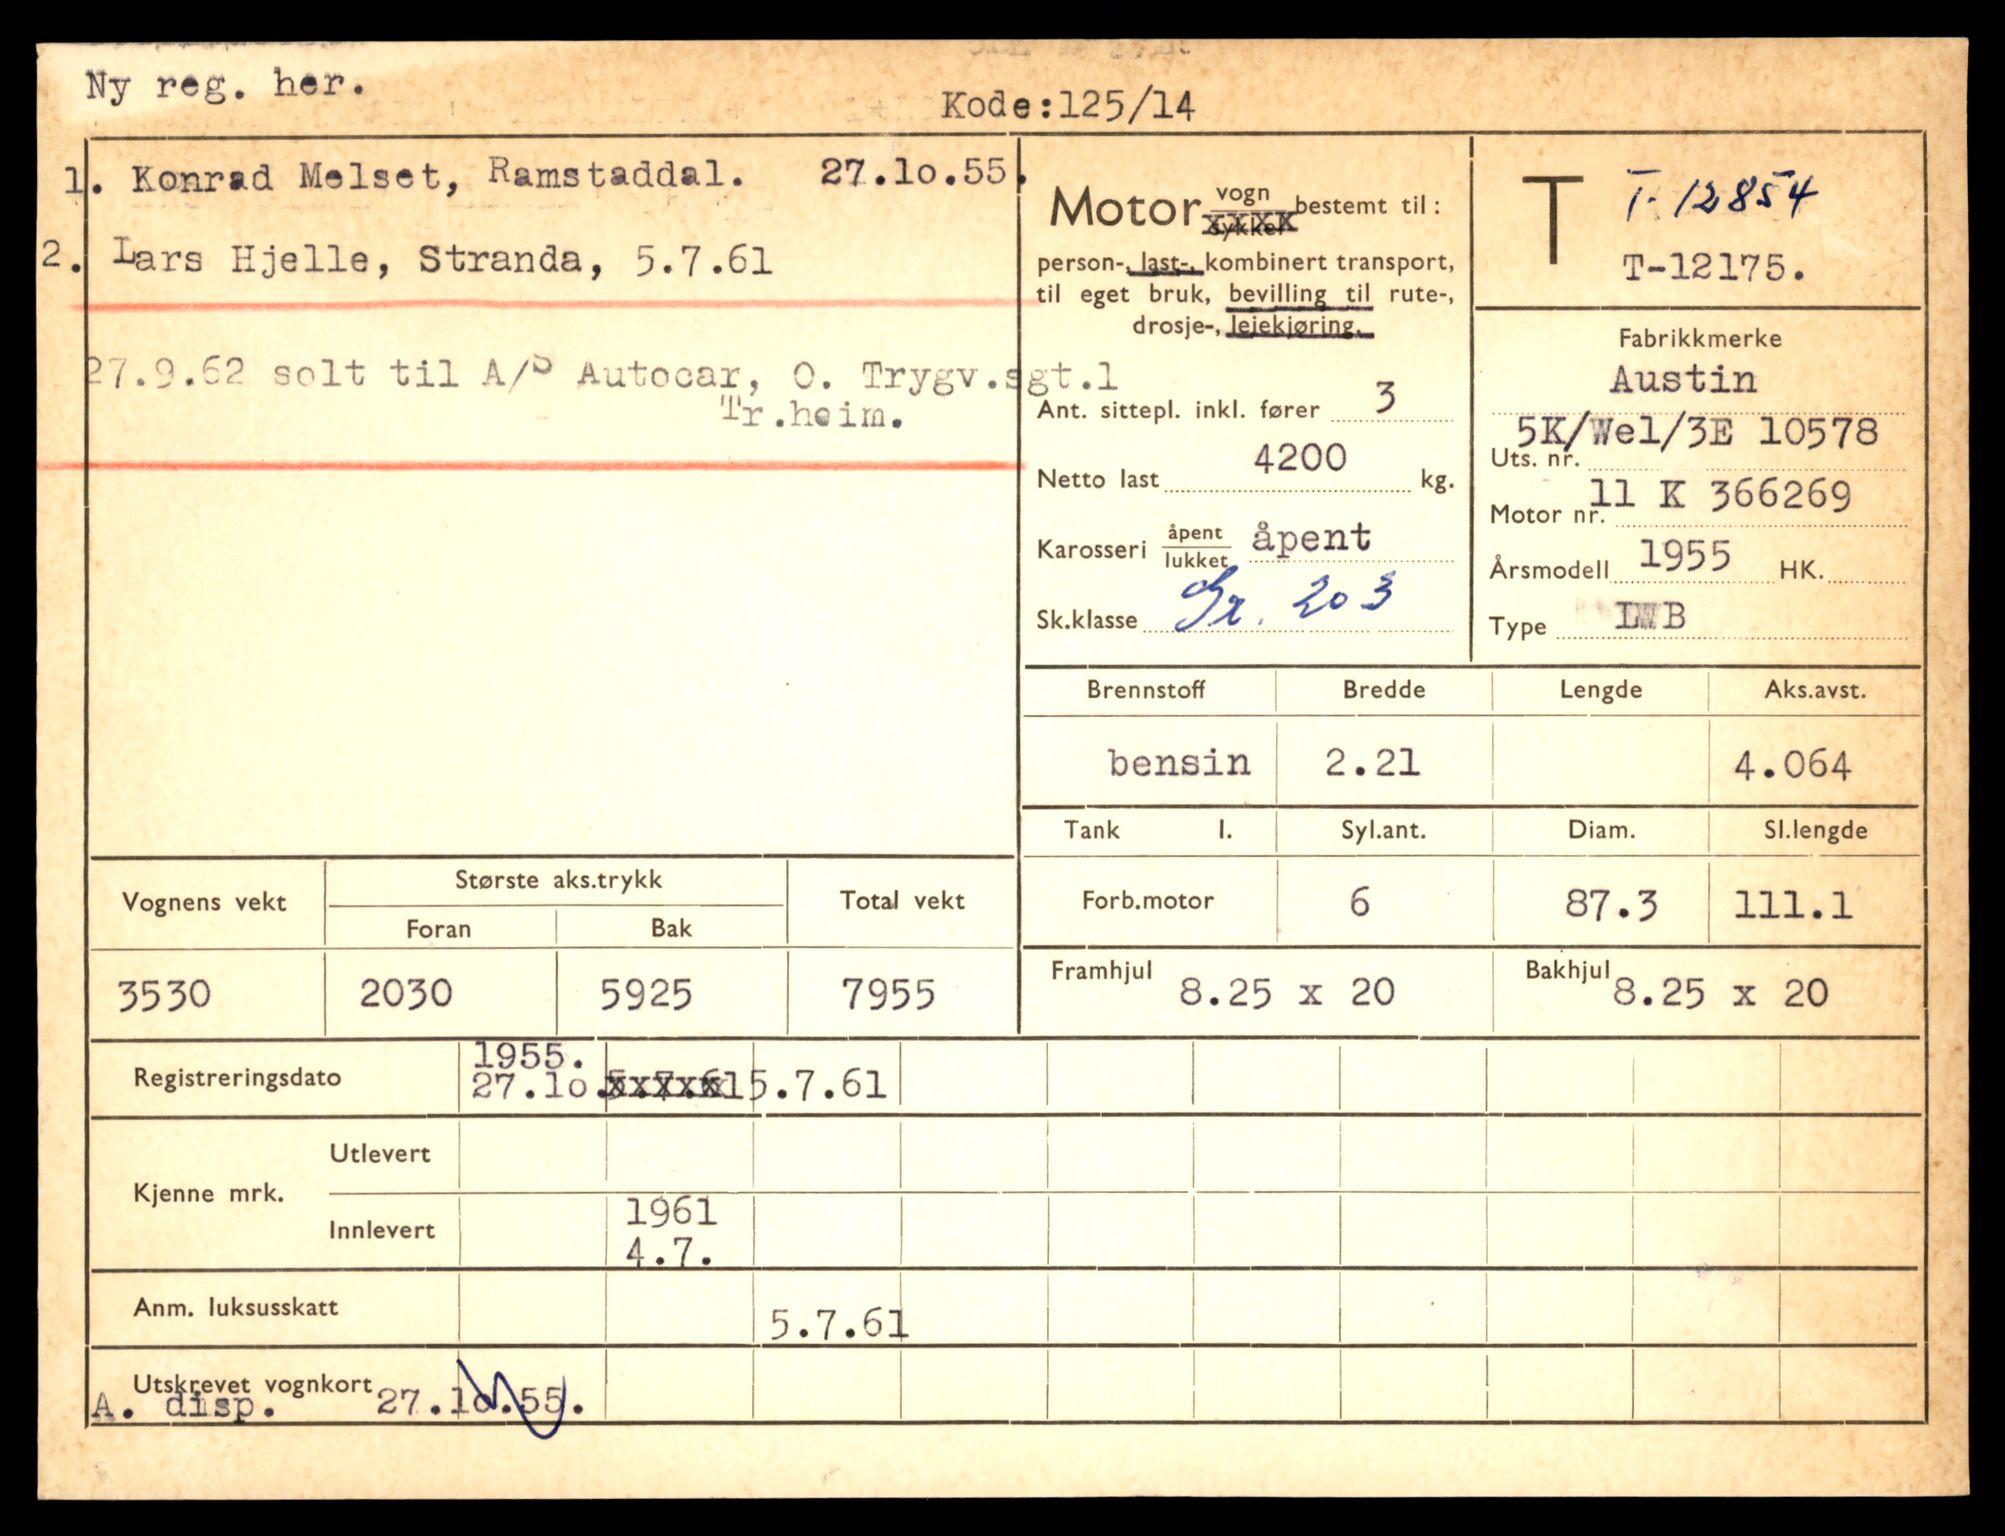 Ny reg. her.
Kode:125/14
1. Konrad Melset, Ramstaddal. 27.lo.55.
2. Lars Hjelle, Stranda, 5.7.61
27.9.62 solt til A/S Autocar, O. Trygv.sgt.1
Tr.heim.
Motor vogn
bestemt til:
person-, last-, kombinert transport,
til eget bruk, bevilling til rute-,
drosje-, leiekjøring.
Ant. sittepl. inkl. fører 3
Netto last 4200 kg.
Karosseri åpent
lukket åpent
Sk.klasse Gr. 203
T T-12854
T-12175.
Fabrikkmerke
Austin
5K/Wel/3E 10578
Uts. nr.
Motor nr. 11 K 366269
Årsmodell 1955 HK.
Type LWB
Brennstoff Bredde Lengde Aks.avst.
bensin 2.21 4.064
Tank l. Syl.ant. Diam. Sl.lengde
Forb.motor 6 87.3 111.1
Framhjul 8.25 x 20 Bakhjul 8.25 x 20
Vognens vekt Største aks.trykk Total vekt
Foran Bak
3530 2030 5925 7955
1955.
Registreringsdato 27.lo. 5.7.61 5.7.61
Kjenne mrk. Utlevert
Innlevert 1961
4.7.
Anm. luksusskatt 5.7.61
Utskrevet vognkort
A. disp. 27.lo.55.